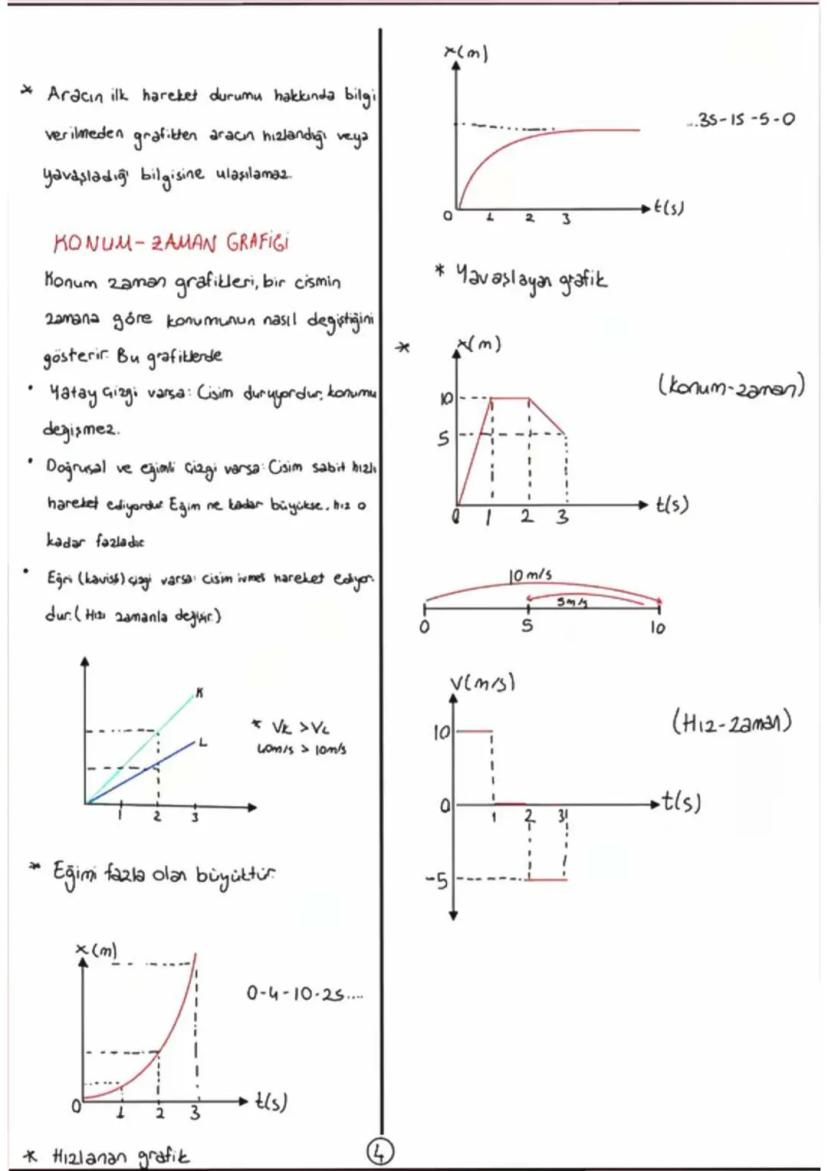 * Aracın ilk hareket durumu hakkında bilgi
verilmeden grafikten aracın hızlandığı veya
yavaşladığı bilgisine ulaşılamaz.
KONUM-ZAMAN GRAFİĞİ
Konum zaman grafikleri, bir cismin
zamana göre konumunun nasıl değiştiğini
gösterir. Bu grafiklerde
• Yatay Çizgi varsa: Cisim duruyordur, konumu
değişmez.
• Doğrusal ve eğimli çizgi varsa: Cisim sabit hızlı
hareket ediyordur Eğim ne kadar büyükse, hız o
kadar fazladır
• Eğri (kavisli) çizgi varsa: cisim ivmeli hareket ediyor-
dur. (Hızı zamanla değişir.)
K
L
1 2 3
* VK > VL
m/s > 10m/s
* Eğimi fazla olan büyüktür.
x(m)
0-4-10-25....
0 1 2 3 t(s)
* Hızlanan grafik
x(m)
...35-15-5-0
0 1 2 3 t(s)
* Yavaşlayan grafik
*
x(m)
(konum-zaman)
10
5
0 1 2 3 t(s)
10 m/s
5m/s
0 5 10
V(m/s)
(Hız-zaman)
10
0 1 2 3 t(s)
-5
4